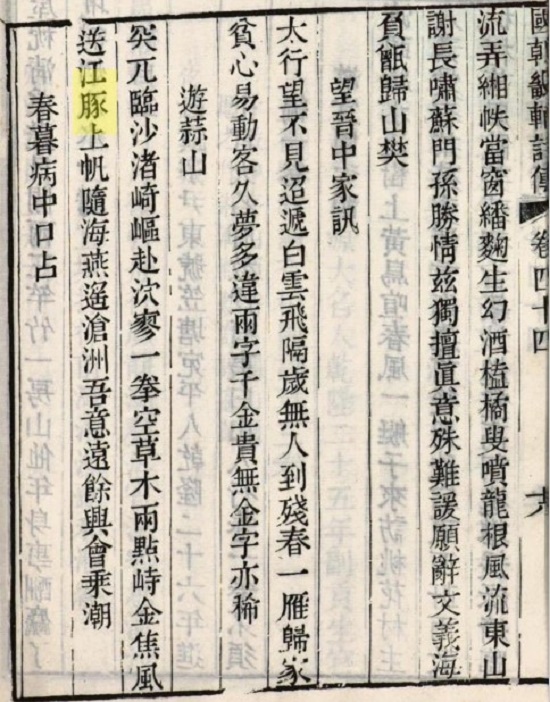 國朝畿輔詩傳 卷四十四 六
流弄緗帙當窗繙麴生幻酒榼橘叟噴龍根風流東山
謝長嘯蘇門孫勝情兹獨擅眞意殊難諼願辭文義海
負甑歸山樊
望晉中家訊
太行望不見迢遞白雲飛隔歲無人到殘春一雁歸家
貧心易動客久夢多違兩字千金貴無金字亦稀
遊蒜山
突兀臨沙渚崎嶇赴泬寥一拳空草木兩點峙金焦風
送江豚上帆隨海燕遥滄洲吾意遠餘興會乗潮
春暮病中口占